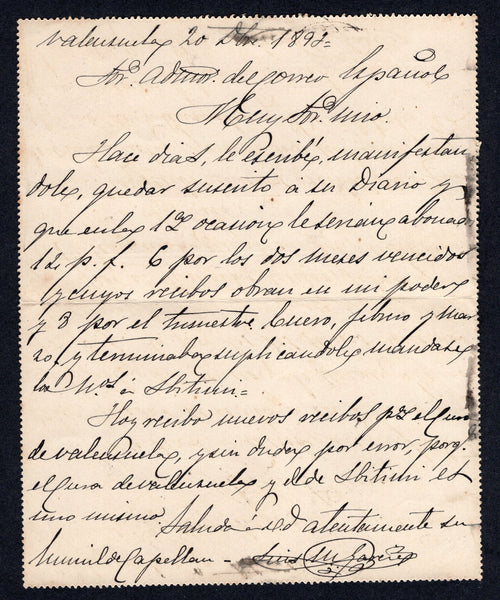 Valenzuela 20 Dbr. 1892=
Sr. Admor. del Correo Español
Muy Sr. mio.
Hace dias, le escribí, manifestan
dole, quedar suscrito a su Diario y
que en la 1ª ocasion le serian abonado
12 p. f. 6 por los dos meses vencidos
y cuyos recibos obran en mi poder
y 3 por el trimestre Enero, febrero y mar
zo, y terminaba suplicandole mandase
los Nos. á Ibituri=
Hoy recibo nuevos recibos pª el Cura
de Valenzuela, y sin duda por error, porq.
el Cura de Valenzuela y el de Ibituri es
uno mismo.
Saluda á Vd atentamente su
humilde Capellan - Luis M.